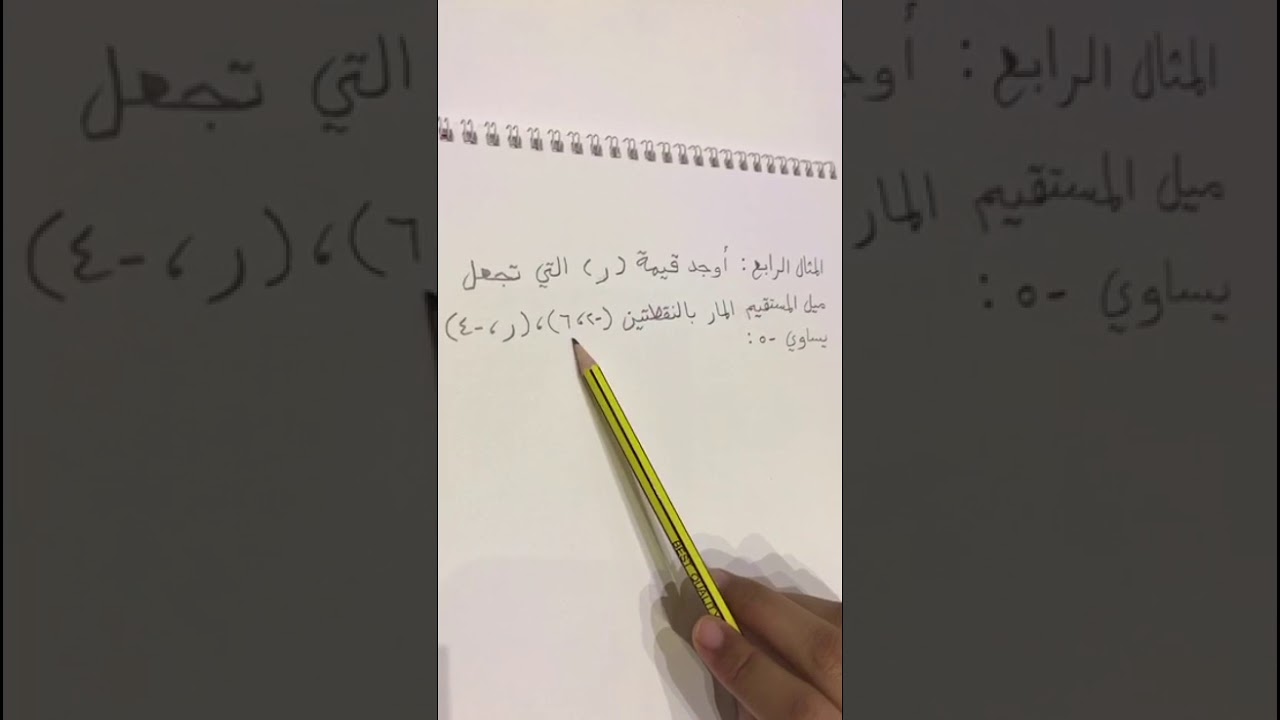 المثال الرابع: أوجد قيمة (ر) التي تجعل
ميل المستقيم المار بالنقطتين (-٢، ٦)، (ر، -٤)
يساوي -٥:
BEST QUALITY